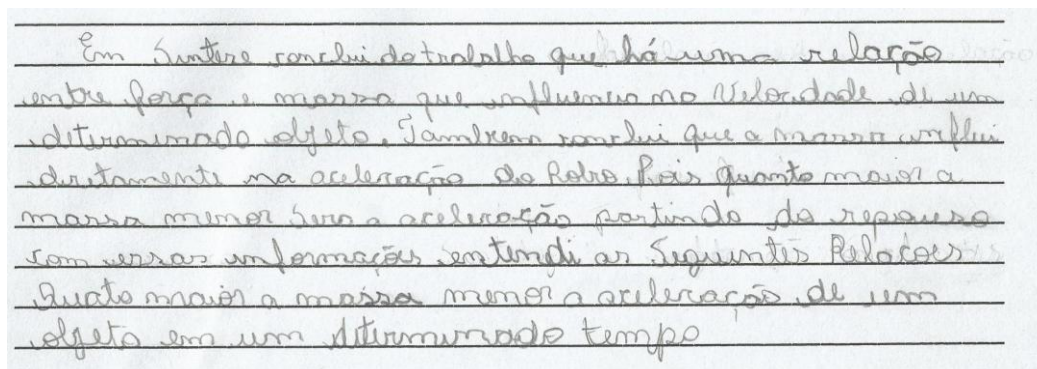 Em Sintese conclui do trabalho que há uma relação
entre força e massa que influencia na Velocidade de um
determinado objeto. Tambem conclui que a massa influi
diretamente na aceleração do Robo. Pois quanto maior a
massa menor Sera a aceleração partindo do repouso
com essas informações entendi as Seguintes Relacoes
Quato maior a massa menor a aceleração de um
objeto em um determinado tempo